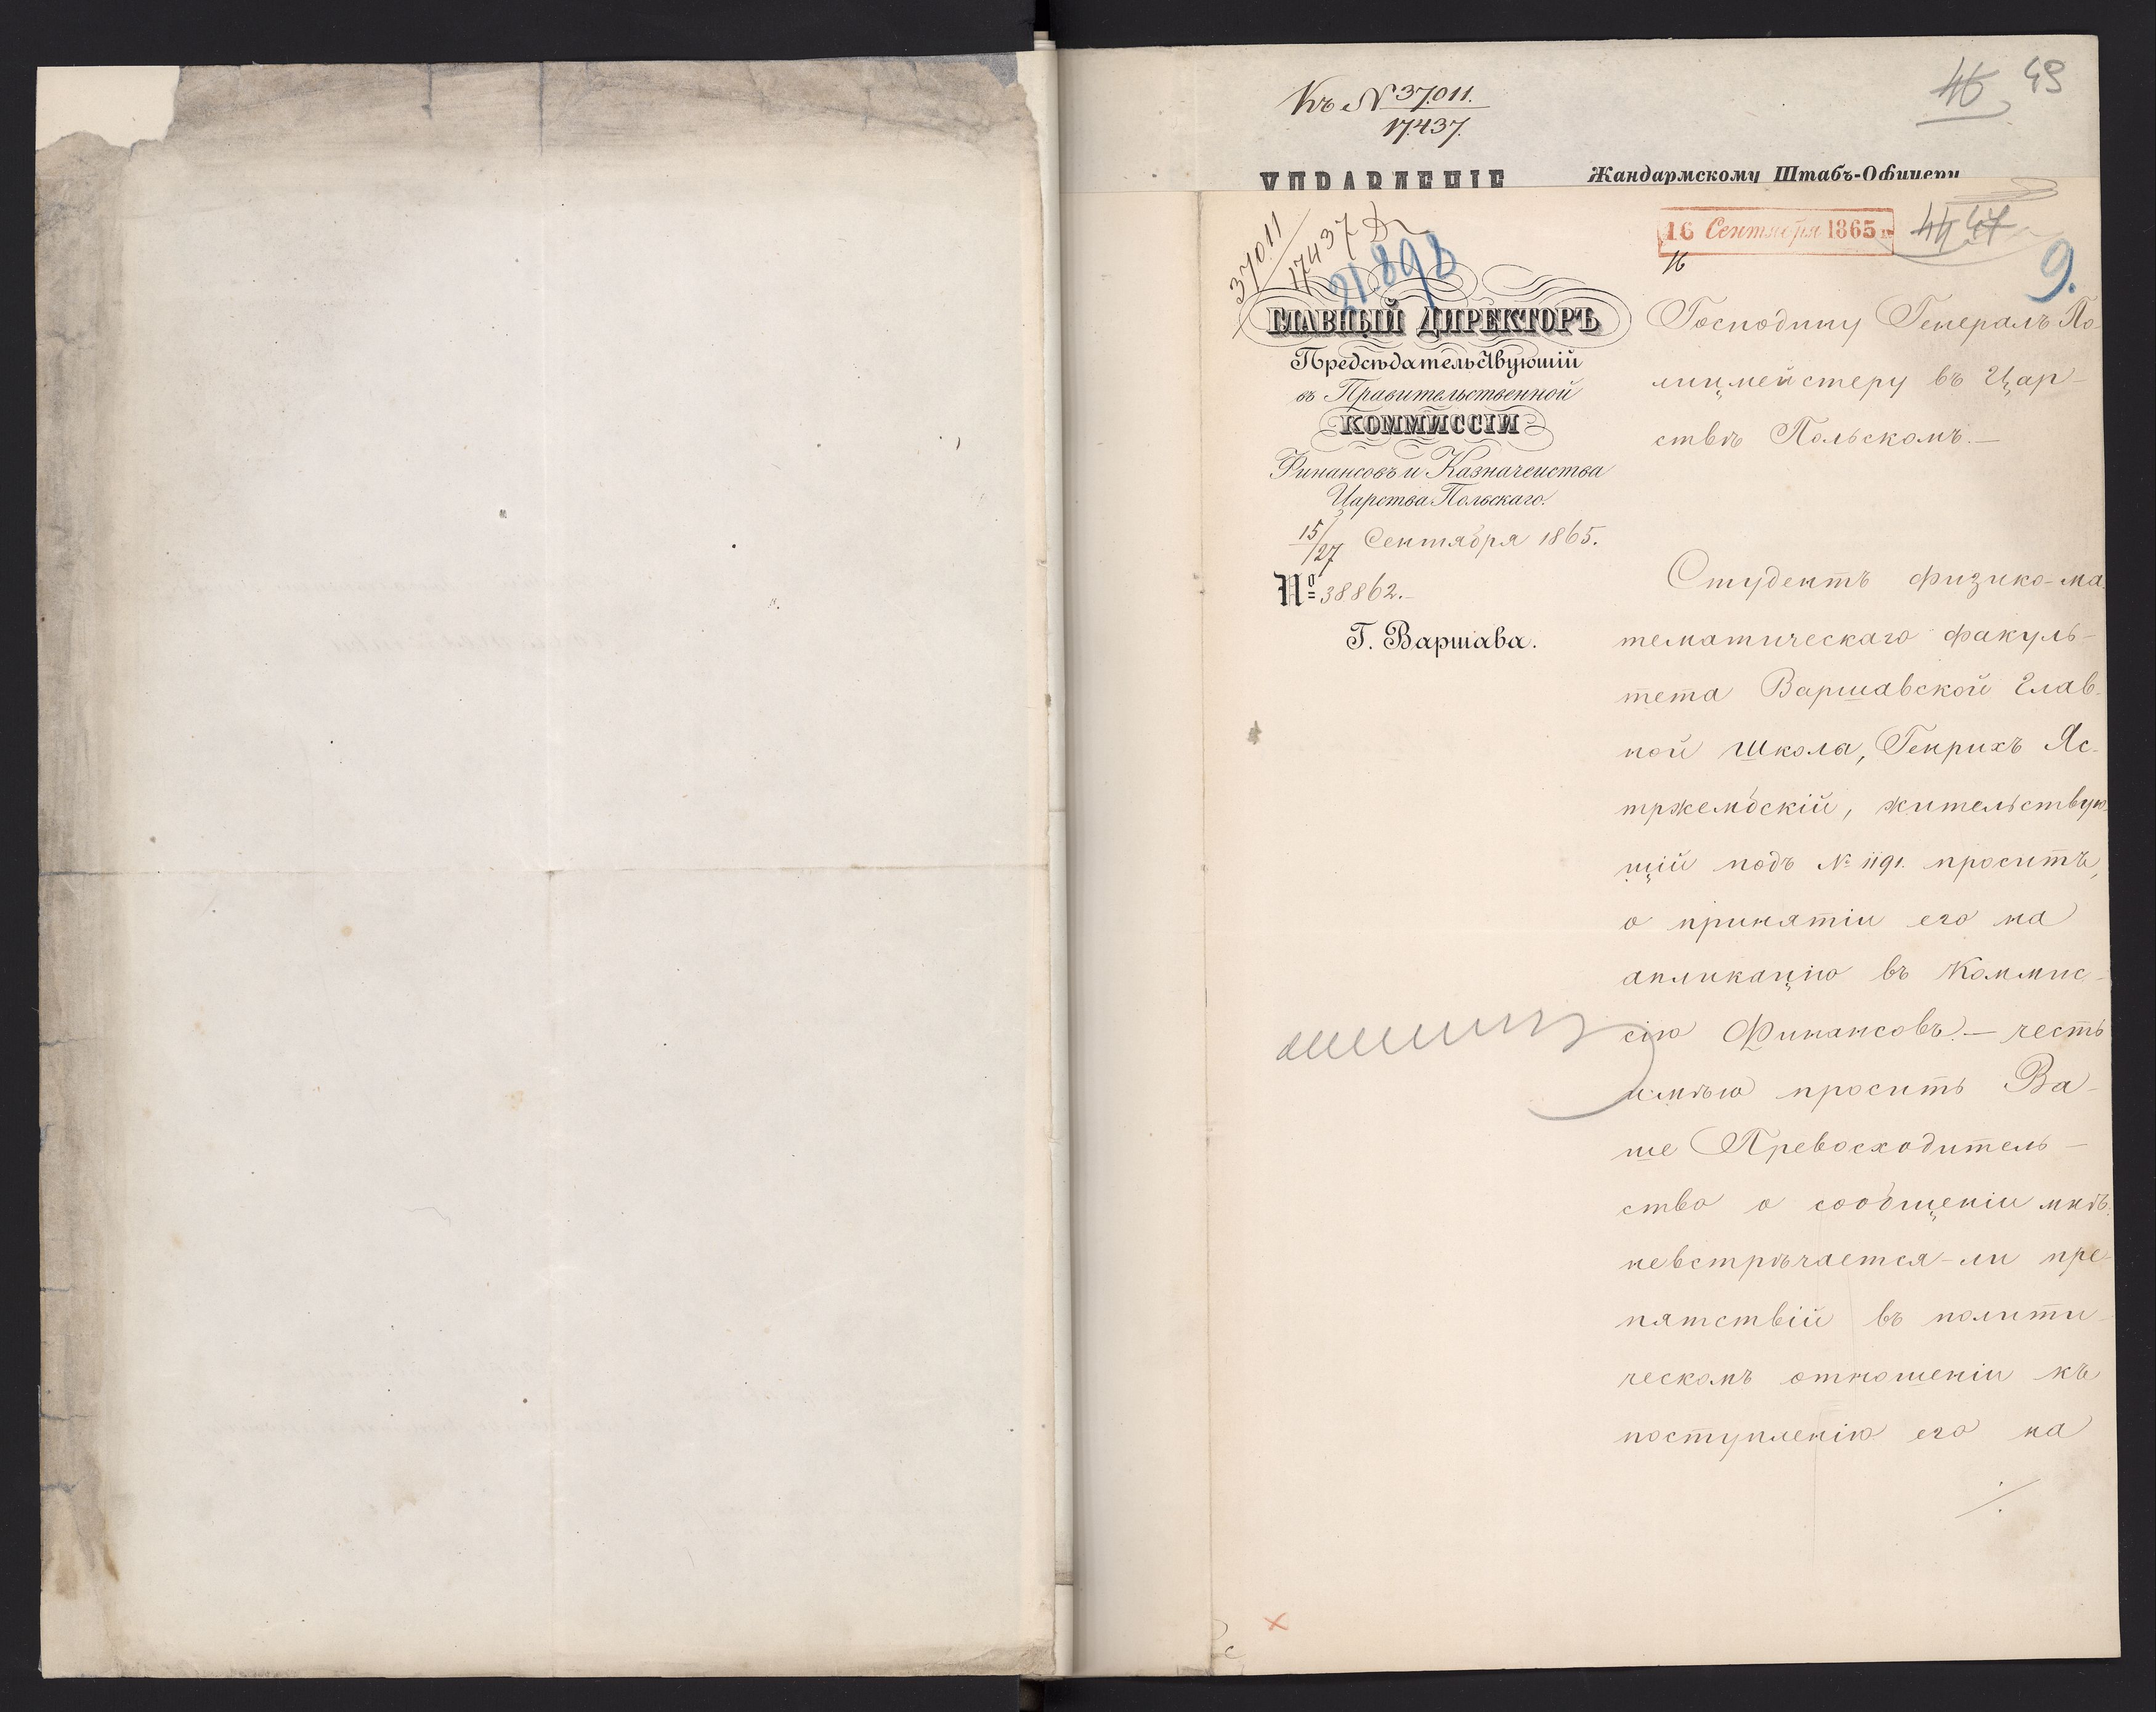 Къ № 37.011.
17.437.
46 49
УПРАВЛЕНІЕ
Жандармскому Штабъ-Офицеру
37011
17437
21.898
16 Сентября 1865 г.
16
44 47
9.
ГЛАВНЫЙ ДИРЕКТОРЪ
Предсѣдательствующій
въ Правительственной
КОММИССІИ
Финансовъ и Казначейства
Царства Польскаго.
15/27 Сентября 1865.
№ 38862.
Г. Варшава.
Господину Генералъ По-
лицмейстеру въ Цар-
ствѣ Польскомъ.—
Студентъ физико-ма-
тематическаго факуль-
тета Варшавской Глав-
ной Школа, Генрихъ Яс-
тржембскій, жительствую-
щій подъ № 1191. проситъ,
о принятіи его на
апликацію въ Коммис-
сію Финансовъ.— честь
имѣю просить Ва-
ше Превосходитель-
ство о сообщеніи мнѣ.
невстрѣчается-ли пре-
пятствій въ полити-
ческомъ отношеніи къ
поступленію его на